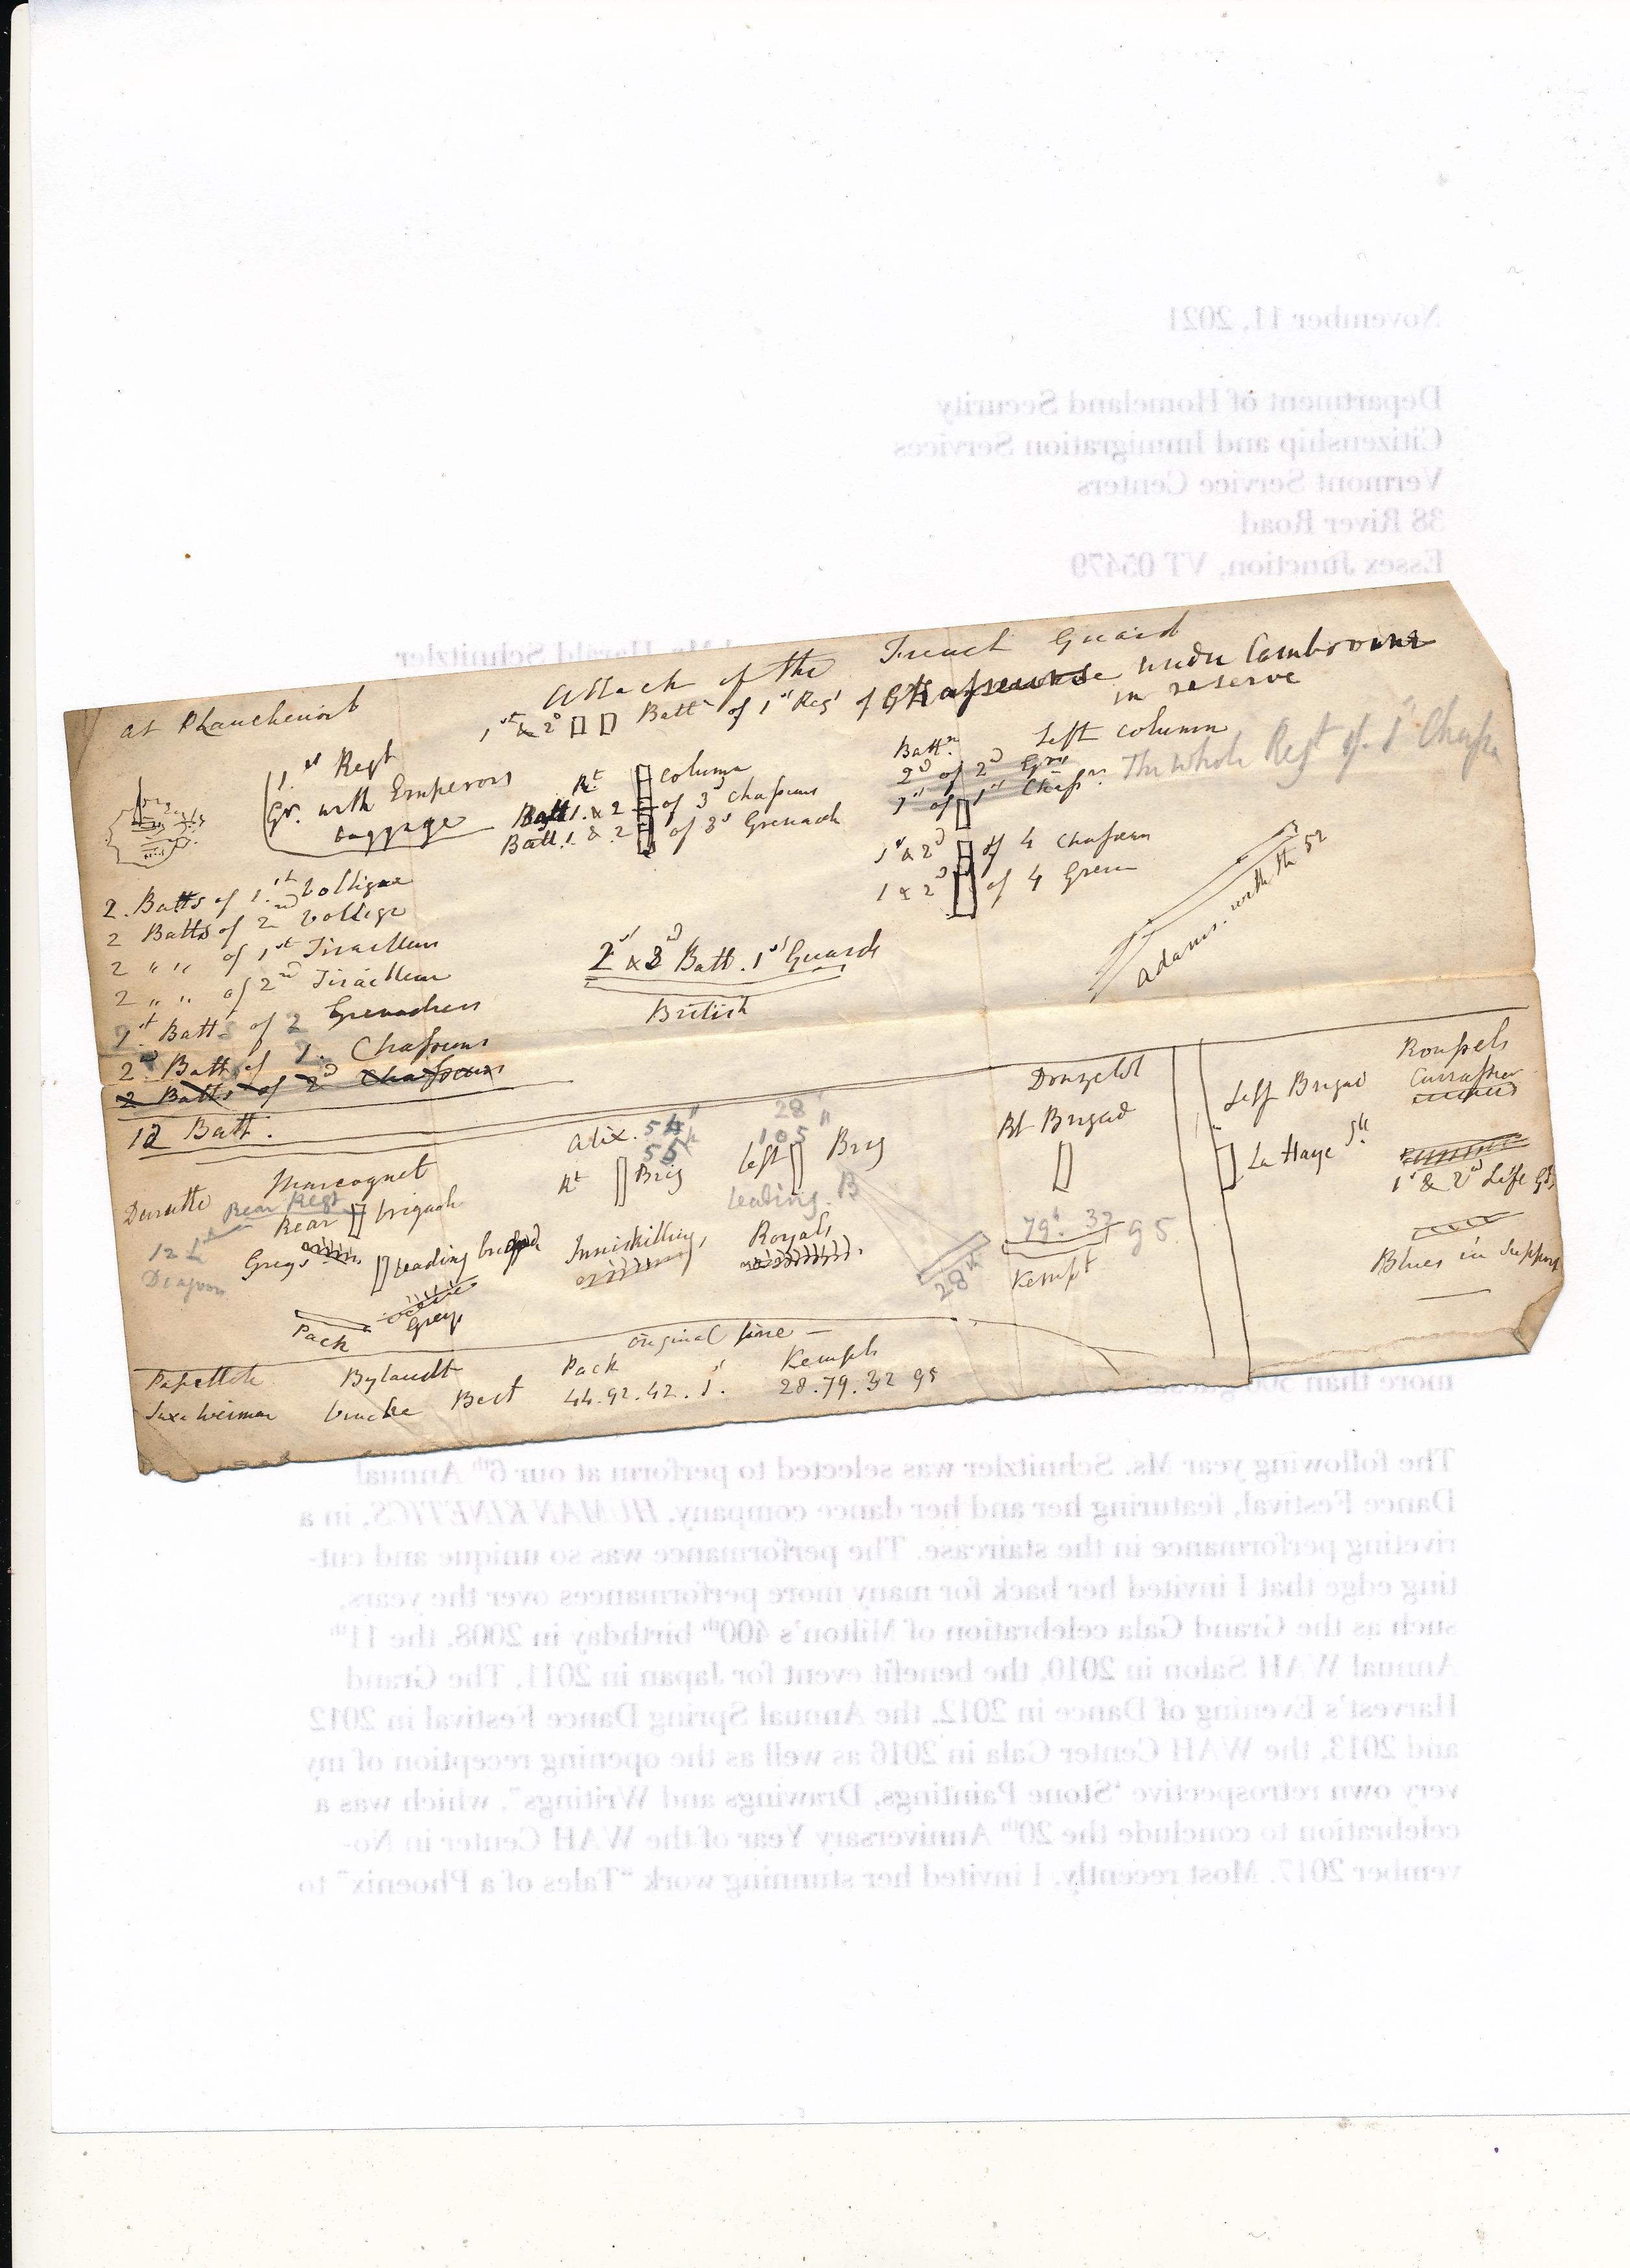 November 11, 2021
Department of Homeland Security
Citizenship and Immigration Services
Vermont Service Centers
38 River Road
Essex Junction, VT 05479
Mr. Harald Schnitzler
at Planchenoit
Attack of the French Guard
1st & 2d Batt of 1st Regt of under Cambronne
in reserve
1st Regt
Gr. with Emperors
baggage
Rt column
Batt 1. & 2 of 3d Chasseurs
Batt. 1 & 2 of 3d Grenad
Battn Left column
2d of 2d Gren
1st of 1st Chasrs The whole Regt of 1st Chass
1st & 2d of 4 Chasseurs
1 & 2d of 4 Gren
Adams. with the 52
2. Batts of 1.st Voltigeur
2 Batts of 2nd Voltige
2 " " of 1st Tirailleurs
2 " " of 2nd Tirailleur
1st Batt of 2 Grenadiers
2nd Batt of 1. Chasseurs
2 Batts of 2d Chasseurs
12 Batt.
2d & 3d Batt. 1st Guards
British
Durutte
Marcognet
Rear Regt
Rear brigade
12 Lt
Dragoon
Greys
Leading brigad
Greys
Pack
Alix. 54th
55th
Rt Brig
28th
105th
Left Brig
Leading B
Inniskillings
Royals
28th
Donzelot
Rt Brigad
79th 32 95
Kempt
Left Brigad
La Haye Ste
Roussels
Cuirassiers
1st & 2d Life Gds
Blues in support
Original line —
Papelotte
Bylandt
Pack
Kempt
Saxe Weimar
Vincke
Best
44. 92. 42. 1st.
28. 79. 32 95
more than 500
The following year Ms. Schnitzler was selected to perform at our 6th Annual
Dance Festival, featuring her and her dance company, HUMAN KINETICS, in a
riveting performance in the staircase. The performance was so unique and cut-
ting edge that I invited her back for many more performances over the years,
such as the Grand Gala celebration of Milton's 400th birthday in 2008, the 11th
Annual WAH Salon in 2010, the benefit event for Japan in 2011, The Grand
Harvest's Evening of Dance in 2012, the Annual Spring Dance Festival in 2012
and 2013, the WAH Center Gala in 2016 as well as the opening reception of my
very own retrospective "Stone Paintings, Drawings and Writings", which was a
celebration to conclude the 20th Anniversary Year of the WAH Center in No-
vember 2017. Most recently, I invited her stunning work "Tales of a Phoenix" to